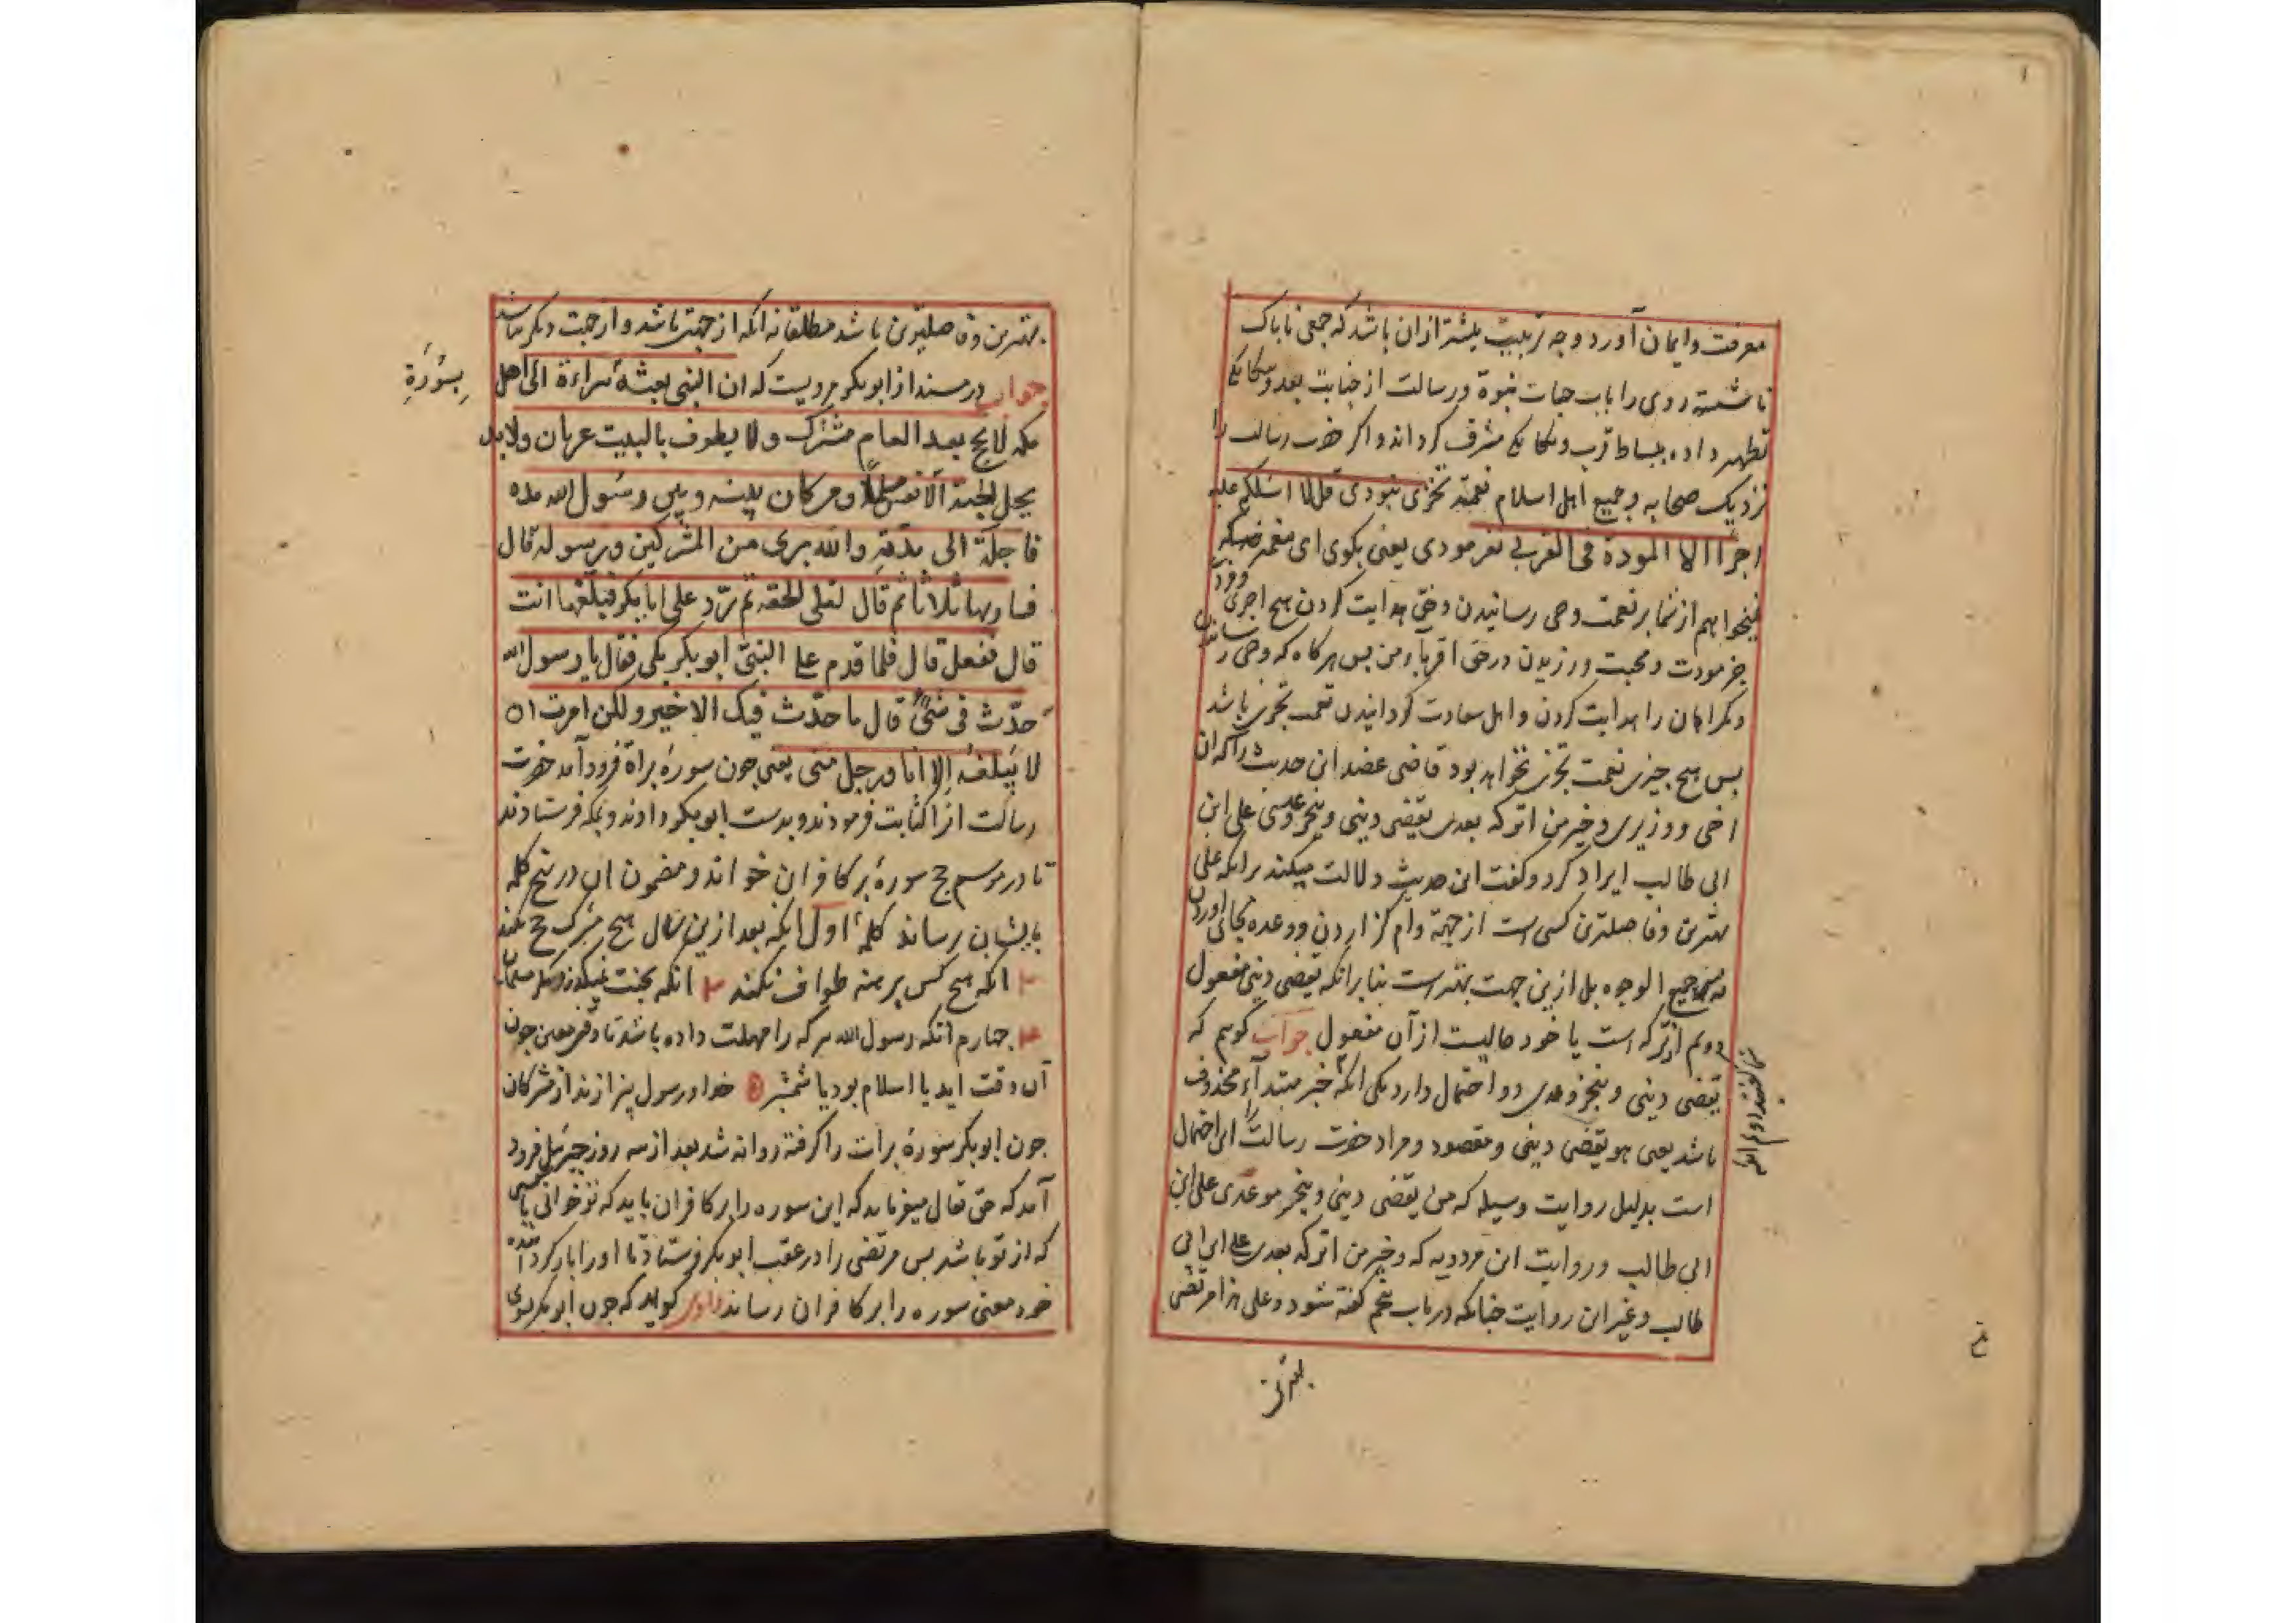 معرفت و ایمان آورد و چه تربیت بیشتر ازان باشد که جمعی ناپاک
ناشسته روی را باب حیات نبوة و رسالت از جنابت بعد و بیگانگی
تطهیر داده ببساط قرب و یگانگی مشرف گرداند و اگر حضرت رسالت را
نزدیک صحابه و جمیع اهل اسلام نعمة تجزی نبودی قل لا اسئلکم علیه
اجرا الا المودة فی القربی نفرمودی یعنی بگوی ای محمد که
نمیخواهم از شما بر نعمت وحی رسانیدن و حق هدایت کردن هیچ اجری و مزد
جز مودت و محبت ورزیدن در حق اقرباء من پس هرگاه که وحی رسانیدن
و گمراهان را هدایت کردن و اهل سعادت گردانیدن نعمت تجزی باشد
پس هیچ چیزی نعمت تجزی نخواهد بود قاضی عضد این حدیث را که ان
اخی و وزیری و خیر من اترکه بعدی یقضی دینی و ینجز وعدی علی ابن
ابی طالب ایراد کرد و گفت این حدیث دلالت میکند برانکه علی
بهترین و فاضلترین کسی است از جهة وام گزاردن و وعده بجای آوردن
نه من جمیع الوجوه بل ازین جهت بهتر است بنا برانکه یقضی دینی مفعول
دویم اترکه است یا خود حالیست از آن مفعول جواب گویم که
یقضی دینی و ینجز وعدی دو احتمال دارد یکی انکه خبر مبتداء محذوف
باشد یعنی هو یقضی دینی و مقصود و مراد حضرت رسالت این احتمال
است بدلیل روایت وسیله که من یقضی دینی و ینجز موعدی علی ابن
ابی طالب و روایت ابن مردویه که و خیر من اترکه بعدی علی ابن ابی
طالب و غیر این روایت چنانکه در باب پنجم گفته شود و علی هذا مرتضی
بهترین
بهترین و فاضلترین باشد مطلقا نه انکه از جهتی باشد و از جهت دیگر نباشد
جواب در مسند از ابوبکر مرویست که ان النبی بعثه براءة الی اهل
بسورة
مکه لا یحج بعد العام مشرک و لا یطوف بالبیت عریان و لا
یحل الجنة الا نفس مسلمة و من کان بینه و بین رسول الله مدة
فاجله الی مدته والله بری من المشرکین و رسوله قال
فسار بها ثلاثا ثم قال لعلی الحقه ثم رد علی ابابکر فبلغها انت
قال ففعل قال فلما قدم علی النبی ابوبکر بکی فقال یا رسول الله
حدث فی شیء قال ما حدث فیک الا خیر و لکن امرت ان
لا یبلغه الا انا و رجل منی یعنی چون سورۀ براة فرود آمد حضرت
رسالت انرا کتابت فرمودند و بدست ابوبکر دادند و بمکه فرستادند
تا در موسم حج سوره بر کافران خواند و مضمون ان در پنج کلمه
بایشان رساند کلمۀ اول انکه بعد ازین سال هیچ مشرک حج نکند
۲ انکه هیچ کس برهنه طواف نکند ۳ انکه بجنت نمیگذرد مگر مسلمان
۴ چهارم انکه رسول الله هر که را مهلت داده باشد تا وقتی معین چون
آن وقت اید یا اسلام بود یا شمشیر ۵ خدا و رسول بیزارند از مشرکان
چون ابوبکر سورۀ برات را گرفته روانه شد بعد از سه روز جبرئیل فرود
آمد که حق تعالی میفرماید که این سوره را بر کافران باید که تو خوانی یا کسی
که از تو باشد پس مرتضی را در عقب ابوبکر فرستاد تا او را باز گردانیده
خود معنی سوره را بر کافران رساند راوی گوید که چون ابوبکر بسوی